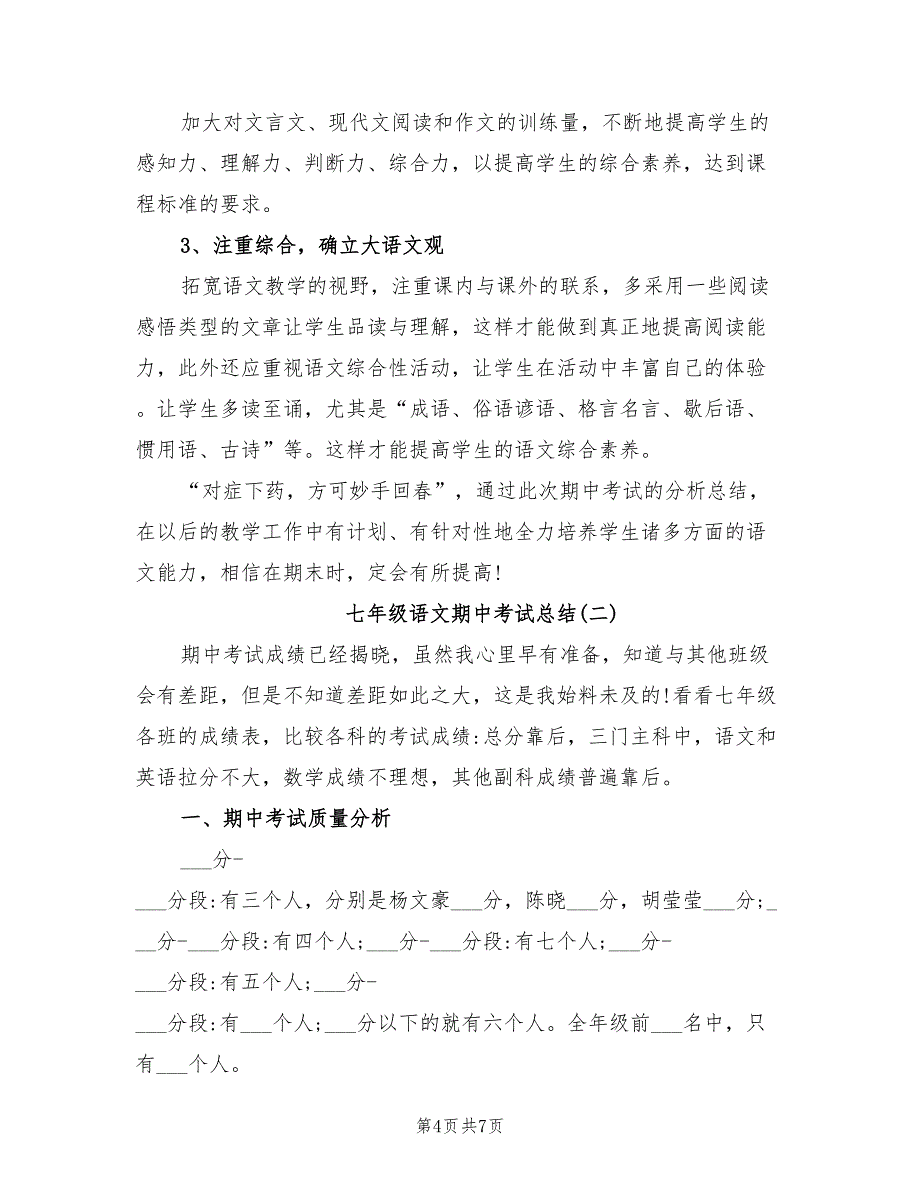 加大对文言文、现代文阅读和作文的训练量，不断地提高学生的
感知力、理解力、判断力、综合力，以提高学生的综合素养，达到课
程标准的要求。
3、注重综合，确立大语文观
拓宽语文教学的视野，注重课内与课外的联系，多采用一些阅读
感悟类型的文章让学生品读与理解，这样才能做到真正地提高阅读能
力，此外还应重视语文综合性活动，让学生在活动中丰富自己的体验
。让学生多读至诵，尤其是“成语、俗语谚语、格言名言、歇后语、
惯用语、古诗”等。这样才能提高学生的语文综合素养。
“对症下药，方可妙手回春”，通过此次期中考试的分析总结，
在以后的教学工作中有计划、有针对性地全力培养学生诸多方面的语
文能力，相信在期末时，定会有所提高!
七年级语文期中考试总结(二)
期中考试成绩已经揭晓，虽然我心里早有准备，知道与其他班级
会有差距，但是不知道差距如此之大，这是我始料未及的!看看七年级
各班的成绩表，比较各科的考试成绩:总分靠后，三门主科中，语文和
英语拉分不大，数学成绩不理想，其他副科成绩普遍靠后。
一、期中考试质量分析
___分-
___分段:有三个人，分别是杨文豪___分，陈晓___分，胡莹莹___分;_
__分-___分段:有四个人;___分-___分段:有七个人;___分-
___分段:有五个人;___分-
___分段:有___个人;___分以下的就有六个人。全年级前___名中，只
有___个人。
第4页共7页